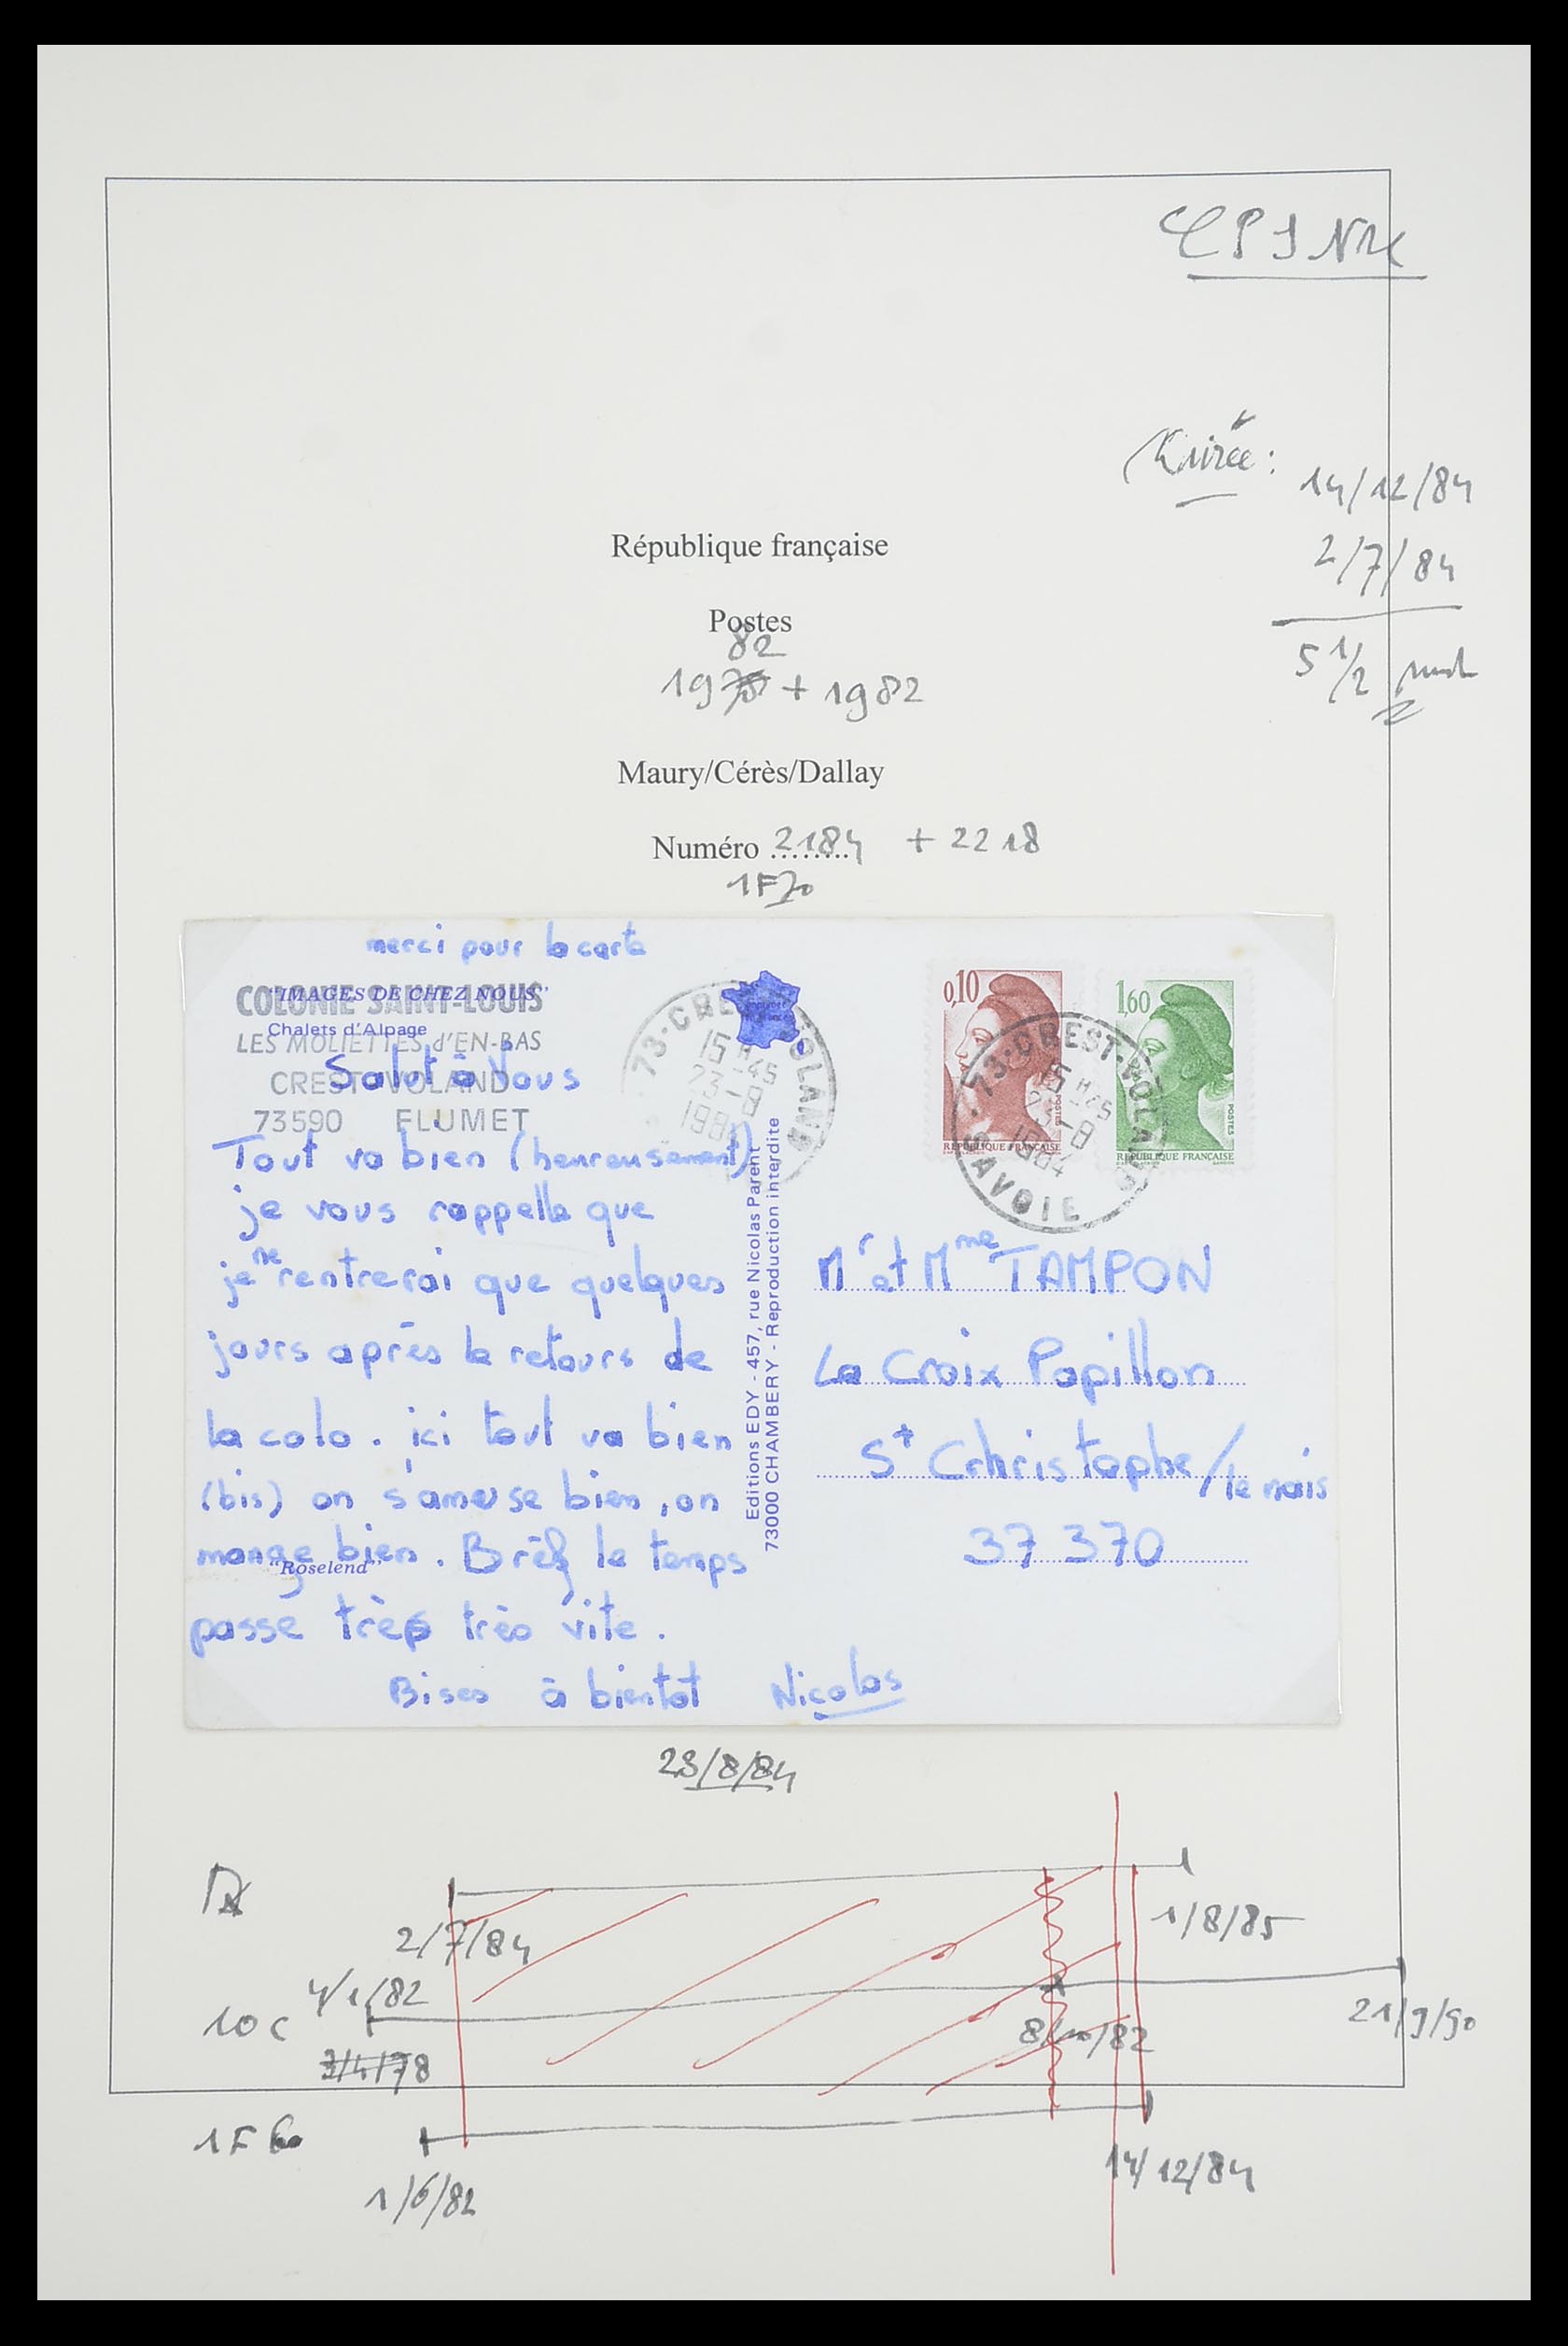 14/12/84
2/7/84
5 1/2
République française
Postes
82
1978 + 1982
Maury/Cérès/Dallay
Numéro ........ 2184 + 2218
1F70
merci pour la carte
COLONIE SAINT-LOUIS
LES MOLIETTES d'EN-BAS
CREST-VOLAND
73590 FLUMET
"IMAGES DE CHEZ NOUS"
Chalets d'Alpage
Salut à Vous
Tout va bien (heureusement)
je vous rappelle que
je ne rentrerai que quelques
jours après le retours de
la colo. ici tout va bien
(bis) on s'ameuse bien, on
mange bien. Brêf le temps
"Roselend"
passe très très vite.
Bises à bientot Nicolas
Editions EDY - 457, rue Nicolas Parent
73000 CHAMBERY - Reproduction interdite
73-CREST-VOLAND
15H45
23-8
198
0,10
POSTES
RÉPUBLIQUE FRANÇAISE
1,60
POSTES
RÉPUBLIQUE FRANÇAISE
73-CREST-VOLAND
15H45
23-8
1984
SAVOIE
Mr et Mme TAMPON
La Croix Papillon
St Chhristophe/le nais
37 370
23/8/84
2/7/84
1/8/85
10c
4/1/82
3/4/78
8/10/82
21/9/90
1F60
1/6/82
14/12/84